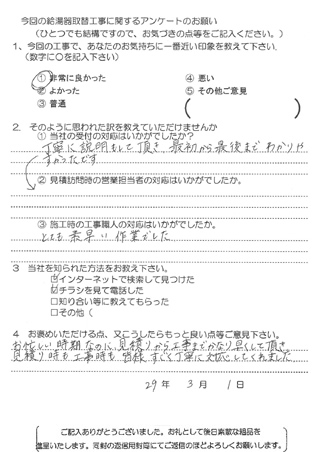 今回の給湯器取替工事に関するアンケートのお願い
（ひとつでも結構ですので、お気づきの点等をご記入ください。）
1、今回の工事で、あなたのお気持ちに一番近い印象を教えて下さい。
（数字に○を記入下さい）
① 非常に良かった ④ 悪い
② よかった ⑤ その他ご意見
③ 普通 （ ）
2. そのように思われた訳を教えていただけませんか
① 当社の受付の対応はいかがでしたか？
丁寧に説明もして頂き、最初から最後まで わかりや
すかったです
② 見積訪問時の営業担当者の対応はいかがでしたか。
③ 施工時の工事職人の対応はいかがでしたか。
とても素早い作業でした
3 当社を知られた方法をお教え下さい。
☑インターネットで検索して見つけた
☑チラシを見て電話した
□知り合い等に教えてもらった
□その他（
4 お褒めいただける点、又こうしたらもっと良い点等ご意見下さい。
お忙しい時期なのに、見積りから工事までかなり早くして頂き、
見積り時も工事時も皆様すごく丁寧に対応してくれました
29年 3月 1日
ご記入ありがとうございました。お礼として後日素敵な粗品を
進呈いたします。同封の返信用封筒にてご返信のほどよろしくお願いします。